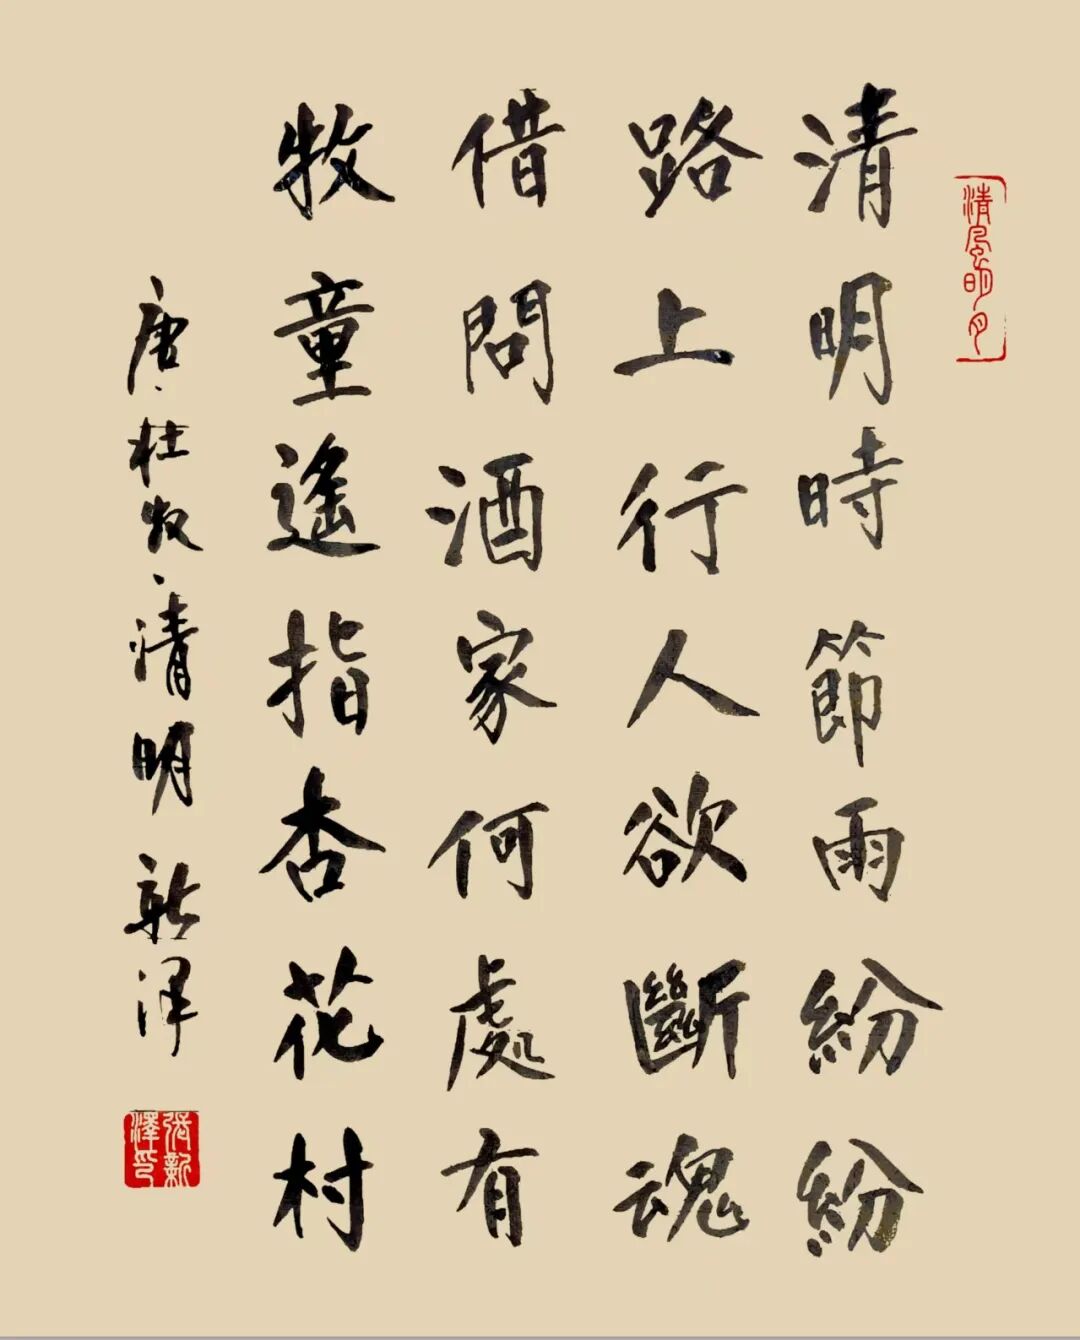 清明時節雨紛紛
路上行人欲斷魂
借問酒家何處有
牧童遙指杏花村
唐杜牧清明 新澤
清風明月
張新澤印